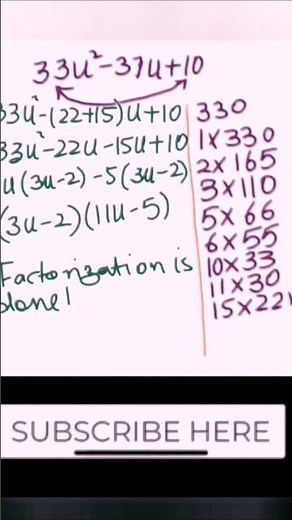 33u²-37u+10
33u²-(22+15)u+10
33u²-22u-15u+10
u(3u-2)-5(3u-2)
(3u-2)(11u-5)
Factorization is
done!
330
1x330
2x165
3x110
5x66
6x55
10x33
11x30
15x22
SUBSCRIBE HERE